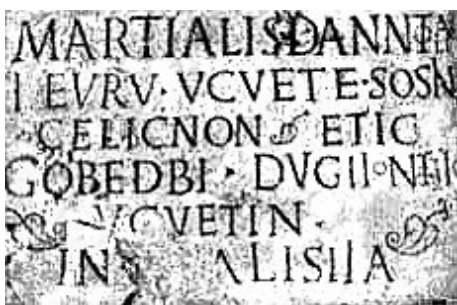 MARTIALIS DANNOTALI
IEVRV · VCVETE · SOSIN
CELICNON ETIC
GOBEDBI · DVGIIONTIIO
VCVETIN ·
IN ALISIIA